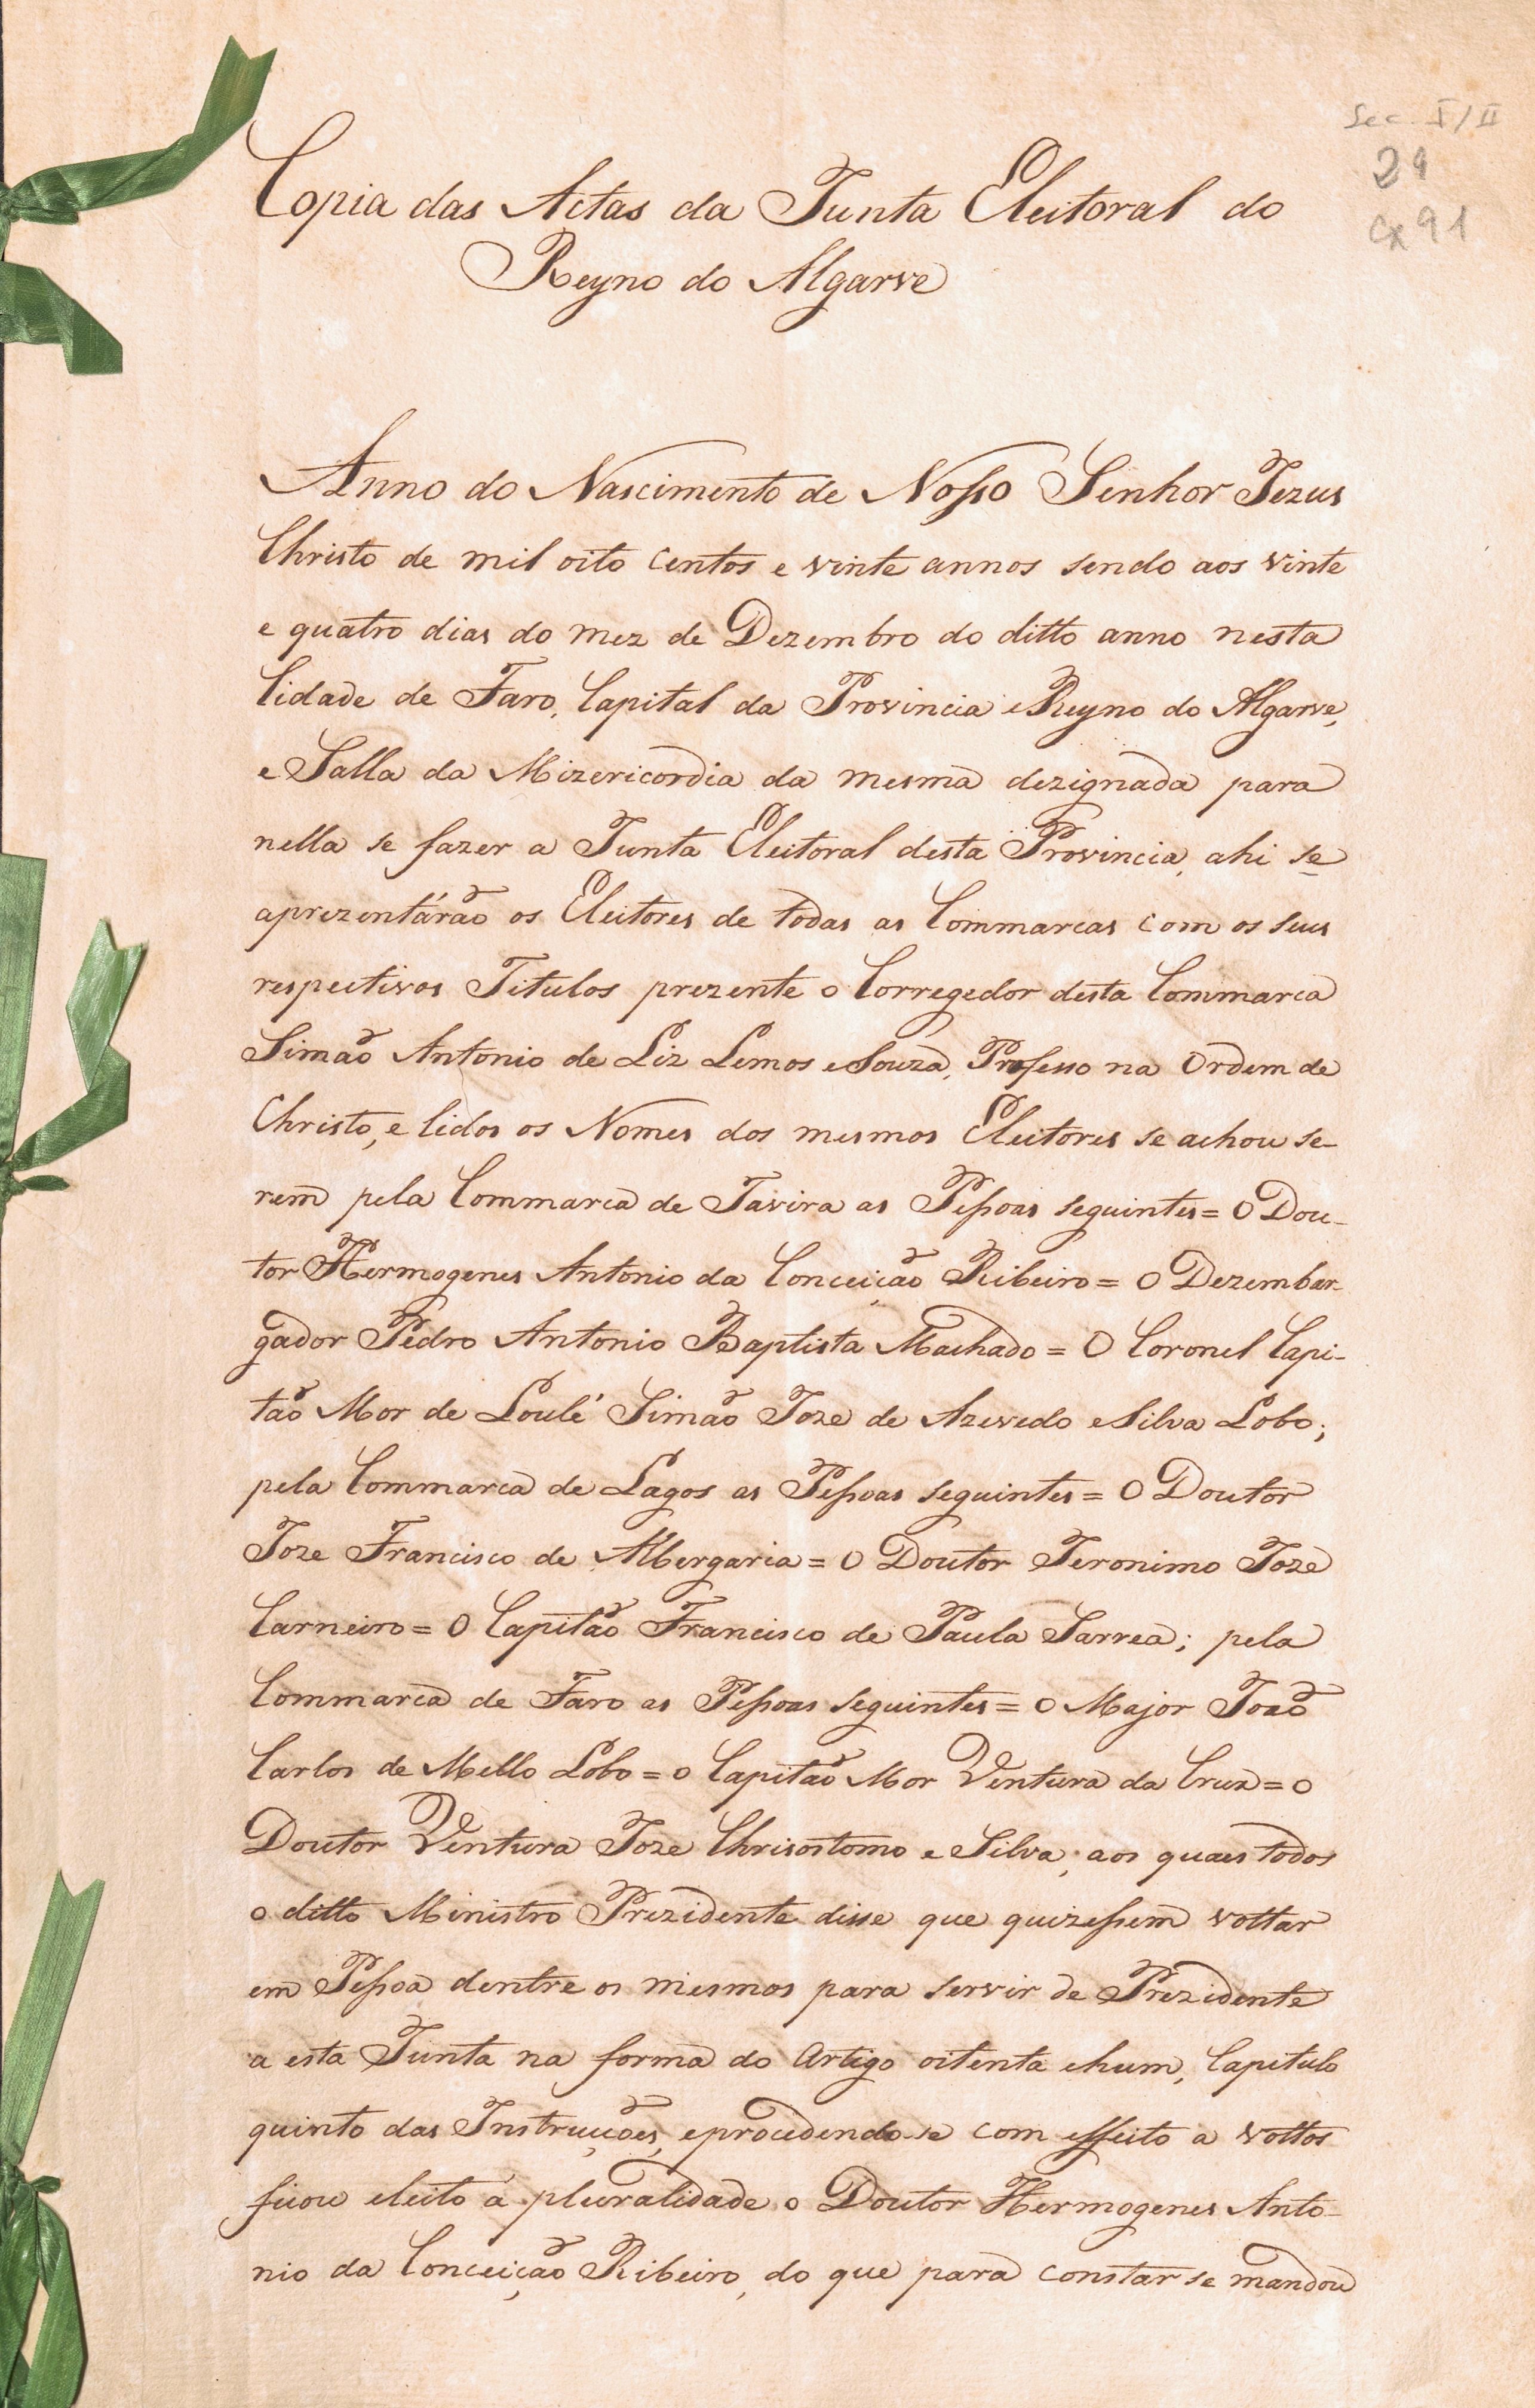 Sec. I/II
29
Cx 91
Copia das Actas da Junta Eleitoral do
Reyno do Algarve
Anno do Nascimento de Nosso Senhor Jezus
Christo de mil oito centos e vinte annos sendo aos vinte
e quatro dias do mez de Dezembro do ditto anno nesta
Cidade de Faro, Capital da Provincia e Reyno do Algarve,
e Salla da Mizericordia da mesma dezignada para
nella se fazer a Junta Eleitoral desta Provincia, ahi se
aprezentárão os Eleitores de todas as Commarcas com os seus
respectivos Titulos prezente o Corregedor desta Commarca
Simão Antonio de Liz Lemos e Souza, Professo na Ordem de
Christo, e lidos os Nomes dos mesmos Eleitores se achou se-
rem pela Commarca de Tavira as Pessoas seguintes = O Dou-
tor Hermogenes Antonio da Conceição Ribeiro = O Dezembar-
gador Pedro Antonio Baptista Machado = O Coronel Capi-
tão Mor de Loulé Simão Joze de Azevedo e Silva Lobo;
pela Commarca de Lagos as Pessoas seguintes = O Doutor
Joze Francisco de Albergaria = O Doutor Jeronimo Joze
Carneiro = O Capitão Francisco de Paula Sarrea; pela
Commarca de Faro as Pessoas seguintes = o Major João
Carlos de Mello Lobo = o Capitão Mor Ventura da Cruz = o
Doutor Ventura Joze Chrisostomo e Silva, aos quaes todos
o ditto Ministro Prezidente disse que quizessem vottar
em Pessoa dentre os mesmos para servir de Prezidente
a esta Junta na forma do Artigo oitenta e hum, Capitulo
quinto das Instrucções, e procedendo-se com effeito a vottos
ficou eleito á pluralidade o Doutor Hermogenes Anto-
nio da Conceição Ribeiro, do que para constar se mandou